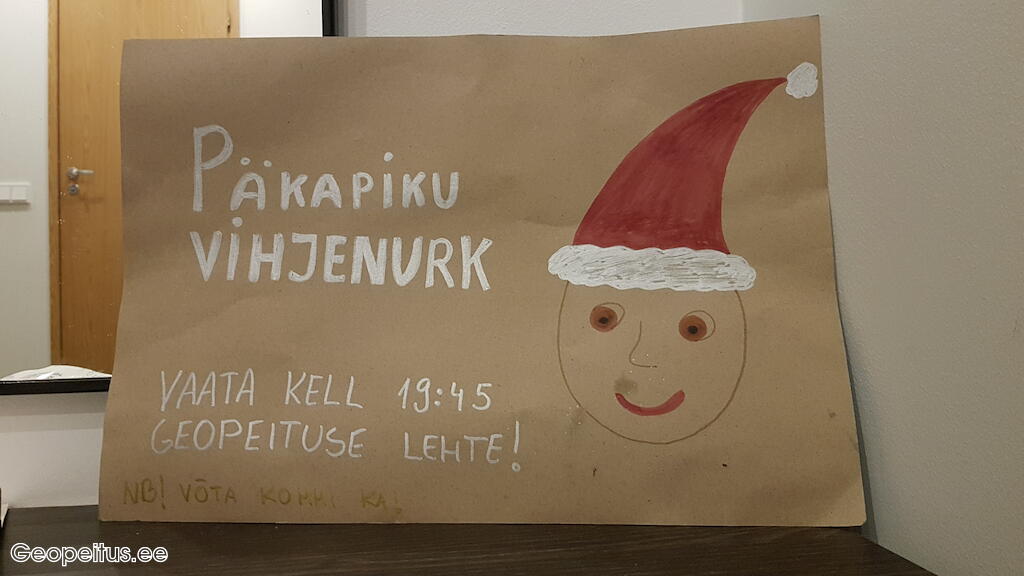 PÄKAPIKU
VIHJENURK
VAATA KELL 19:45
GEOPEITUSE LEHTE!
NB! VÕTA KOMMI KA!
Geopeitus.ee